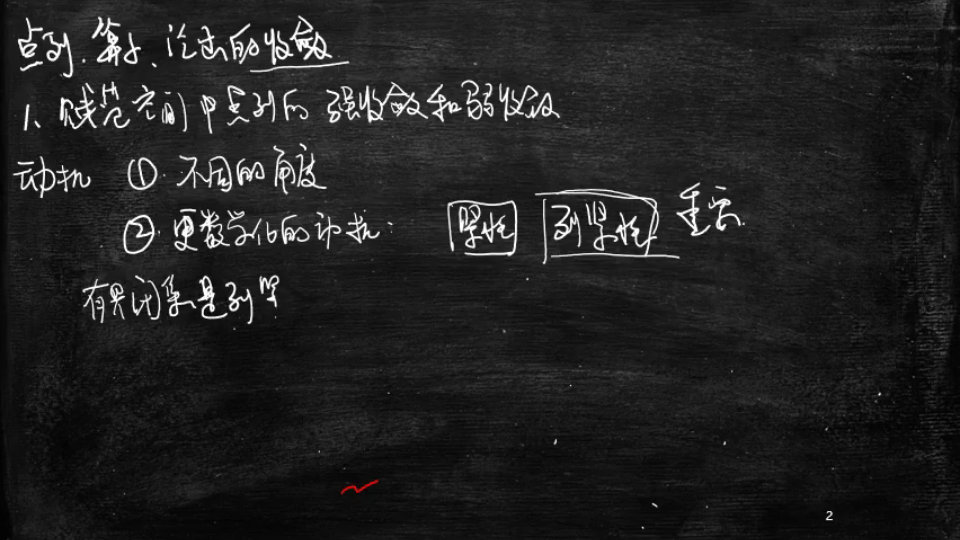 点列、算子、泛函的收敛
1、赋范空间中点列的 强收敛和弱收敛
动机 ① 不同的角度
② 更数学化的动机: 紧性 列紧性 重要.
有界闭集是列紧
2